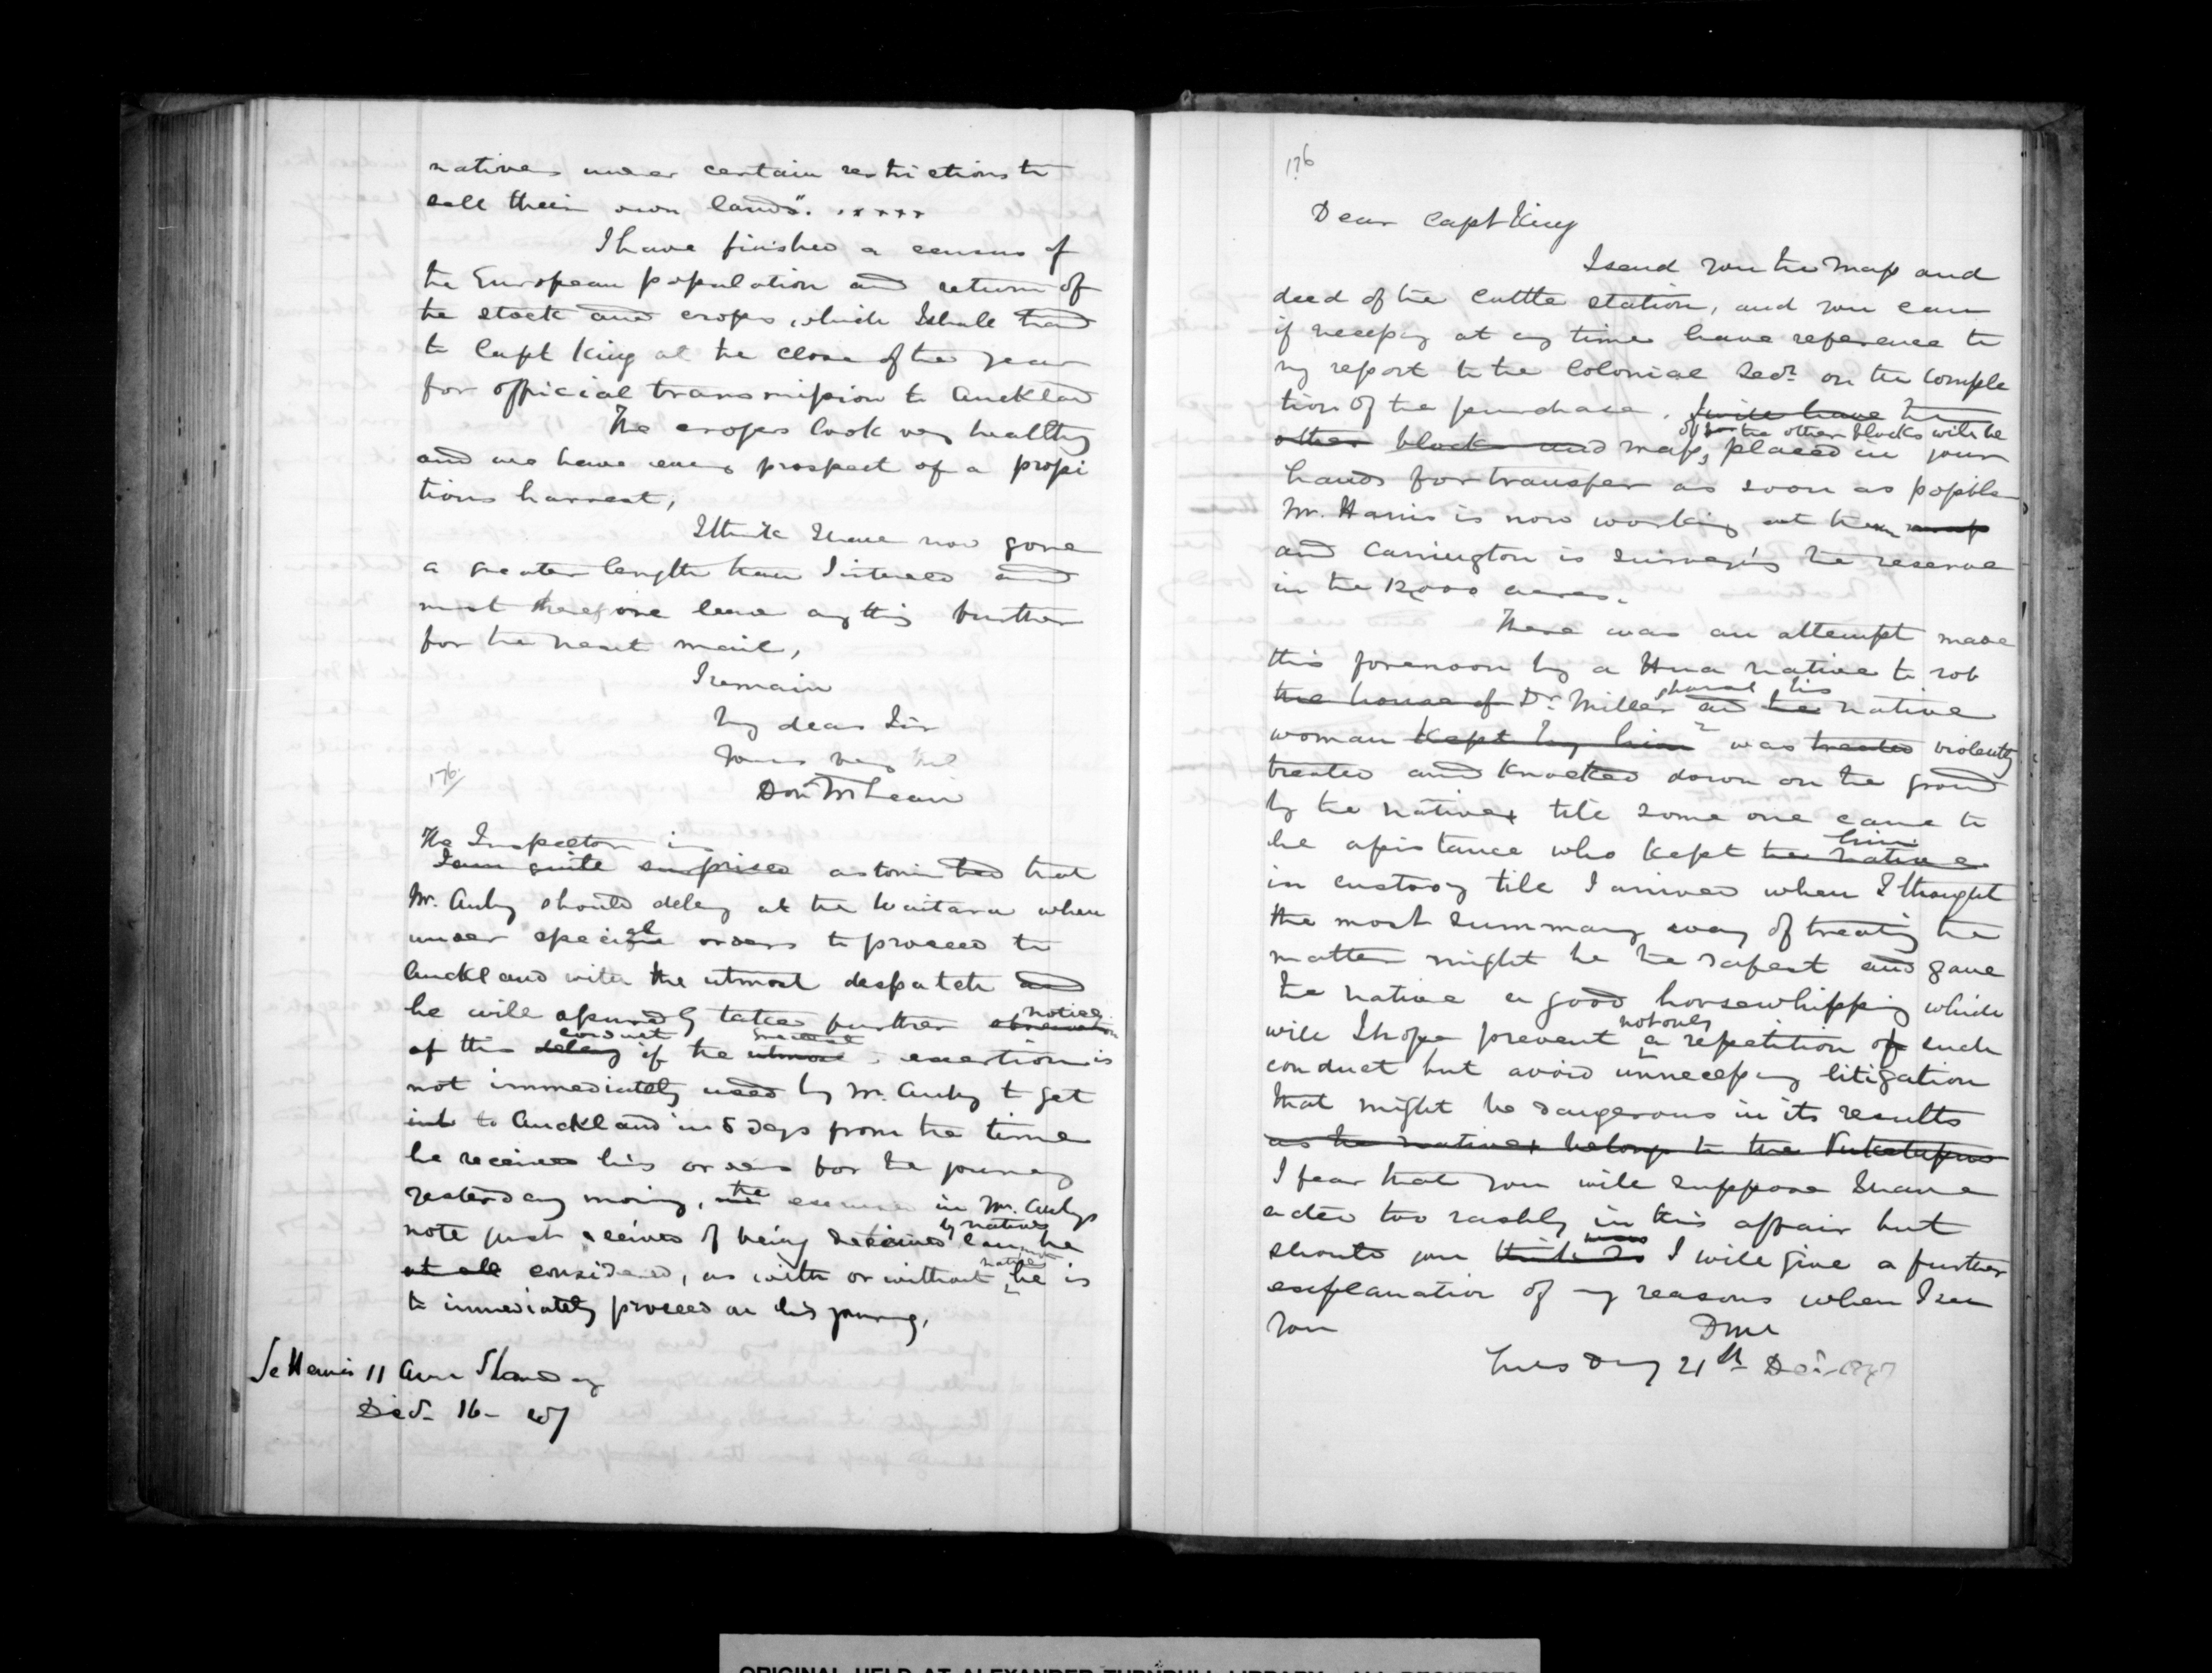 natives under certain restrictions to
sell their own lands". xxxxx
I have finished a census of
the European population and return of
the stock and crops, which I shall hand
to Capt King at the close of the year
for official transmission to Auckland
The crops look very healthy
and we have every prospect of a propi
tious harvest,
I think I have now gone
a greater length than I intended and
must therefore leave anything further
for the next mail,
I remain
My dear Sir
Yours very
Don McLean
176
The Inspector is
I am quite surprised astonished that
Mr. Auby should delay at the Waitara when
under special orders to proceed to
Auckland with the utmost despatch and
notice
he will assuredly take further observation
conduct greatest
of this delay if the utmost exertion is
not immediately used by Mr. Auby to get
into to Auckland in 8 days from the time
he received his orders for the journey
the
yesterday morning, excuse in Mr. Aubys
by natives
note just received of being detained can be
not
natives
at all considered, as with or without he is
to immediately proceed on his journey,
11 Thursday
Decr. 16 - 47
176
Dear Capt King
I send you the map and
deed of the Cattle station, and you can
if necessary at any time have reference to
my report to the Colonial Secr. on the comple
tion of the purchase. I will have the
of the other blocks will be
other block and maps, placed in your
hands for transfer as soon as possible
Mr. Harris is now working at them map
and Carrington is surveying the reserve
in the 12,000 acres.
There was an attempt made
this forenoon by a Hua native to rob
his
the house of Dr. Miller and the native
woman kept by him was treated violently
treated and knocked down on the ground
by the native, till some one came to
him
her assistance who kept the native
in custody till I arrived when I thought
the most summary way of treating the
matter might be the safest and gave
the native a good horsewhipping which
not only
will I hope prevent a repetition of such
conduct but avoid unnecessary litigation
that might be dangerous in its results
as the natives belongs to the Puketapus
I fear that you will suppose I have
acted too rashly in this affair but
should you think so I will give a further
explanation of my reasons when I see
you
DMc
Tuesday 21st Decr. 1847
ORIGINAL HELD AT ALEXANDER TURNBULL LIBRARY. ALL REQUESTS